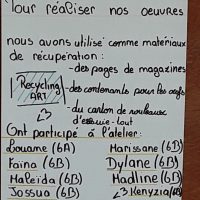 Pour réaliser nos oeuvres
nous avons utilisé comme matériaux
de récupération:
- des pages de magazines
Recycling
ART
- des contenants pour les oeufs
- du carton de rouleaux
d'essuie-tout
<3
Ont participé à l'atelier:
Louane (6A)
Marissane (6B)
Faïna (6B)
Dylane (6B)
Maleïda (6B)
Madline (6B)
Jossua (6B)
<3 Kenyzia (6B)